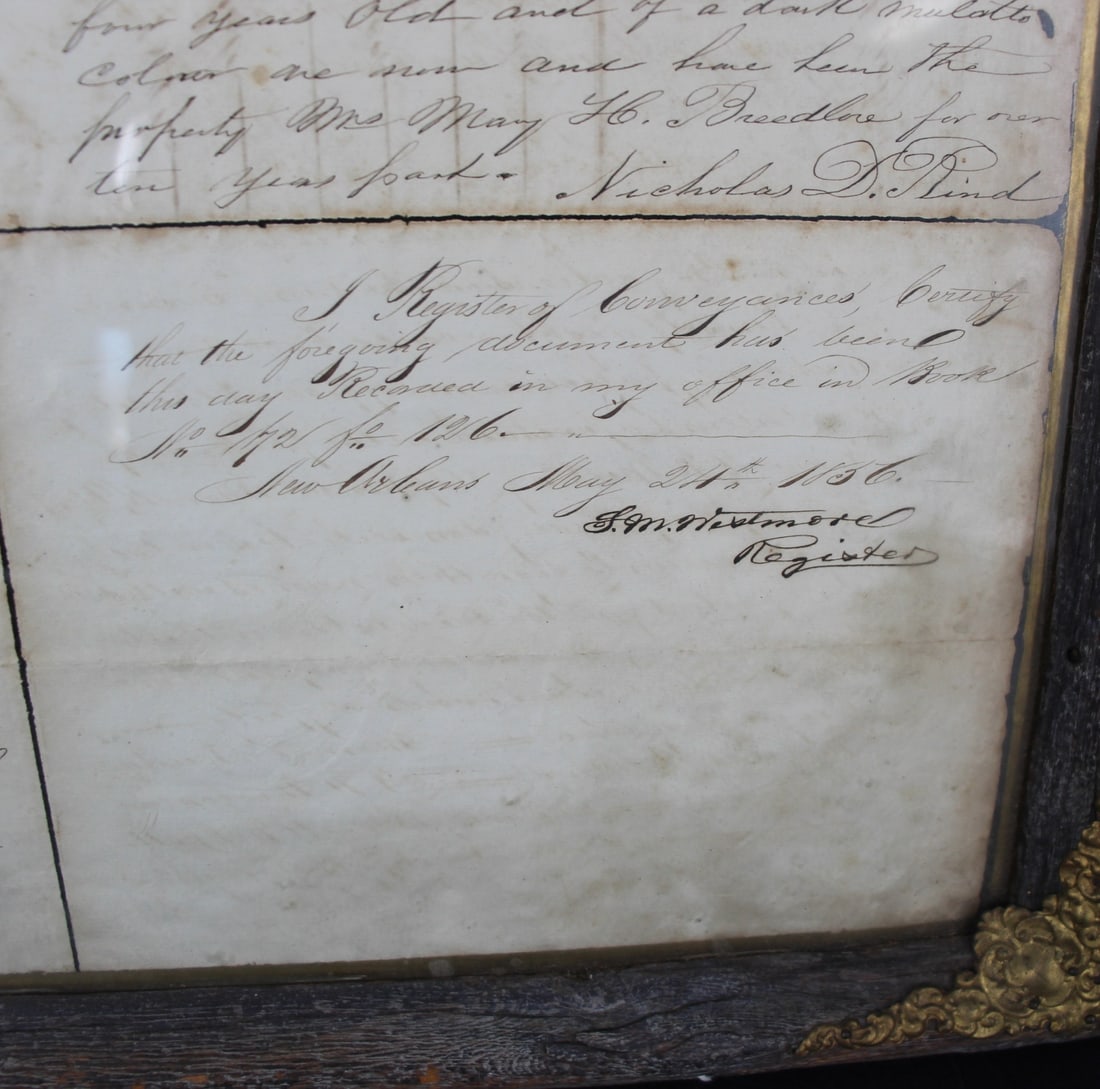 four years old and of a dark mulatto
colour are now and have been the
property Mrs Mary H. Breedlove for over
ten years past. Nicholas D. Rind
I Register of Conveyances, Certify
that the foregoing document has been
this day Recorded in my office in Book
No 72 fo 126.
New Orleans May 24th 1856.
S. M. Westmore
Register